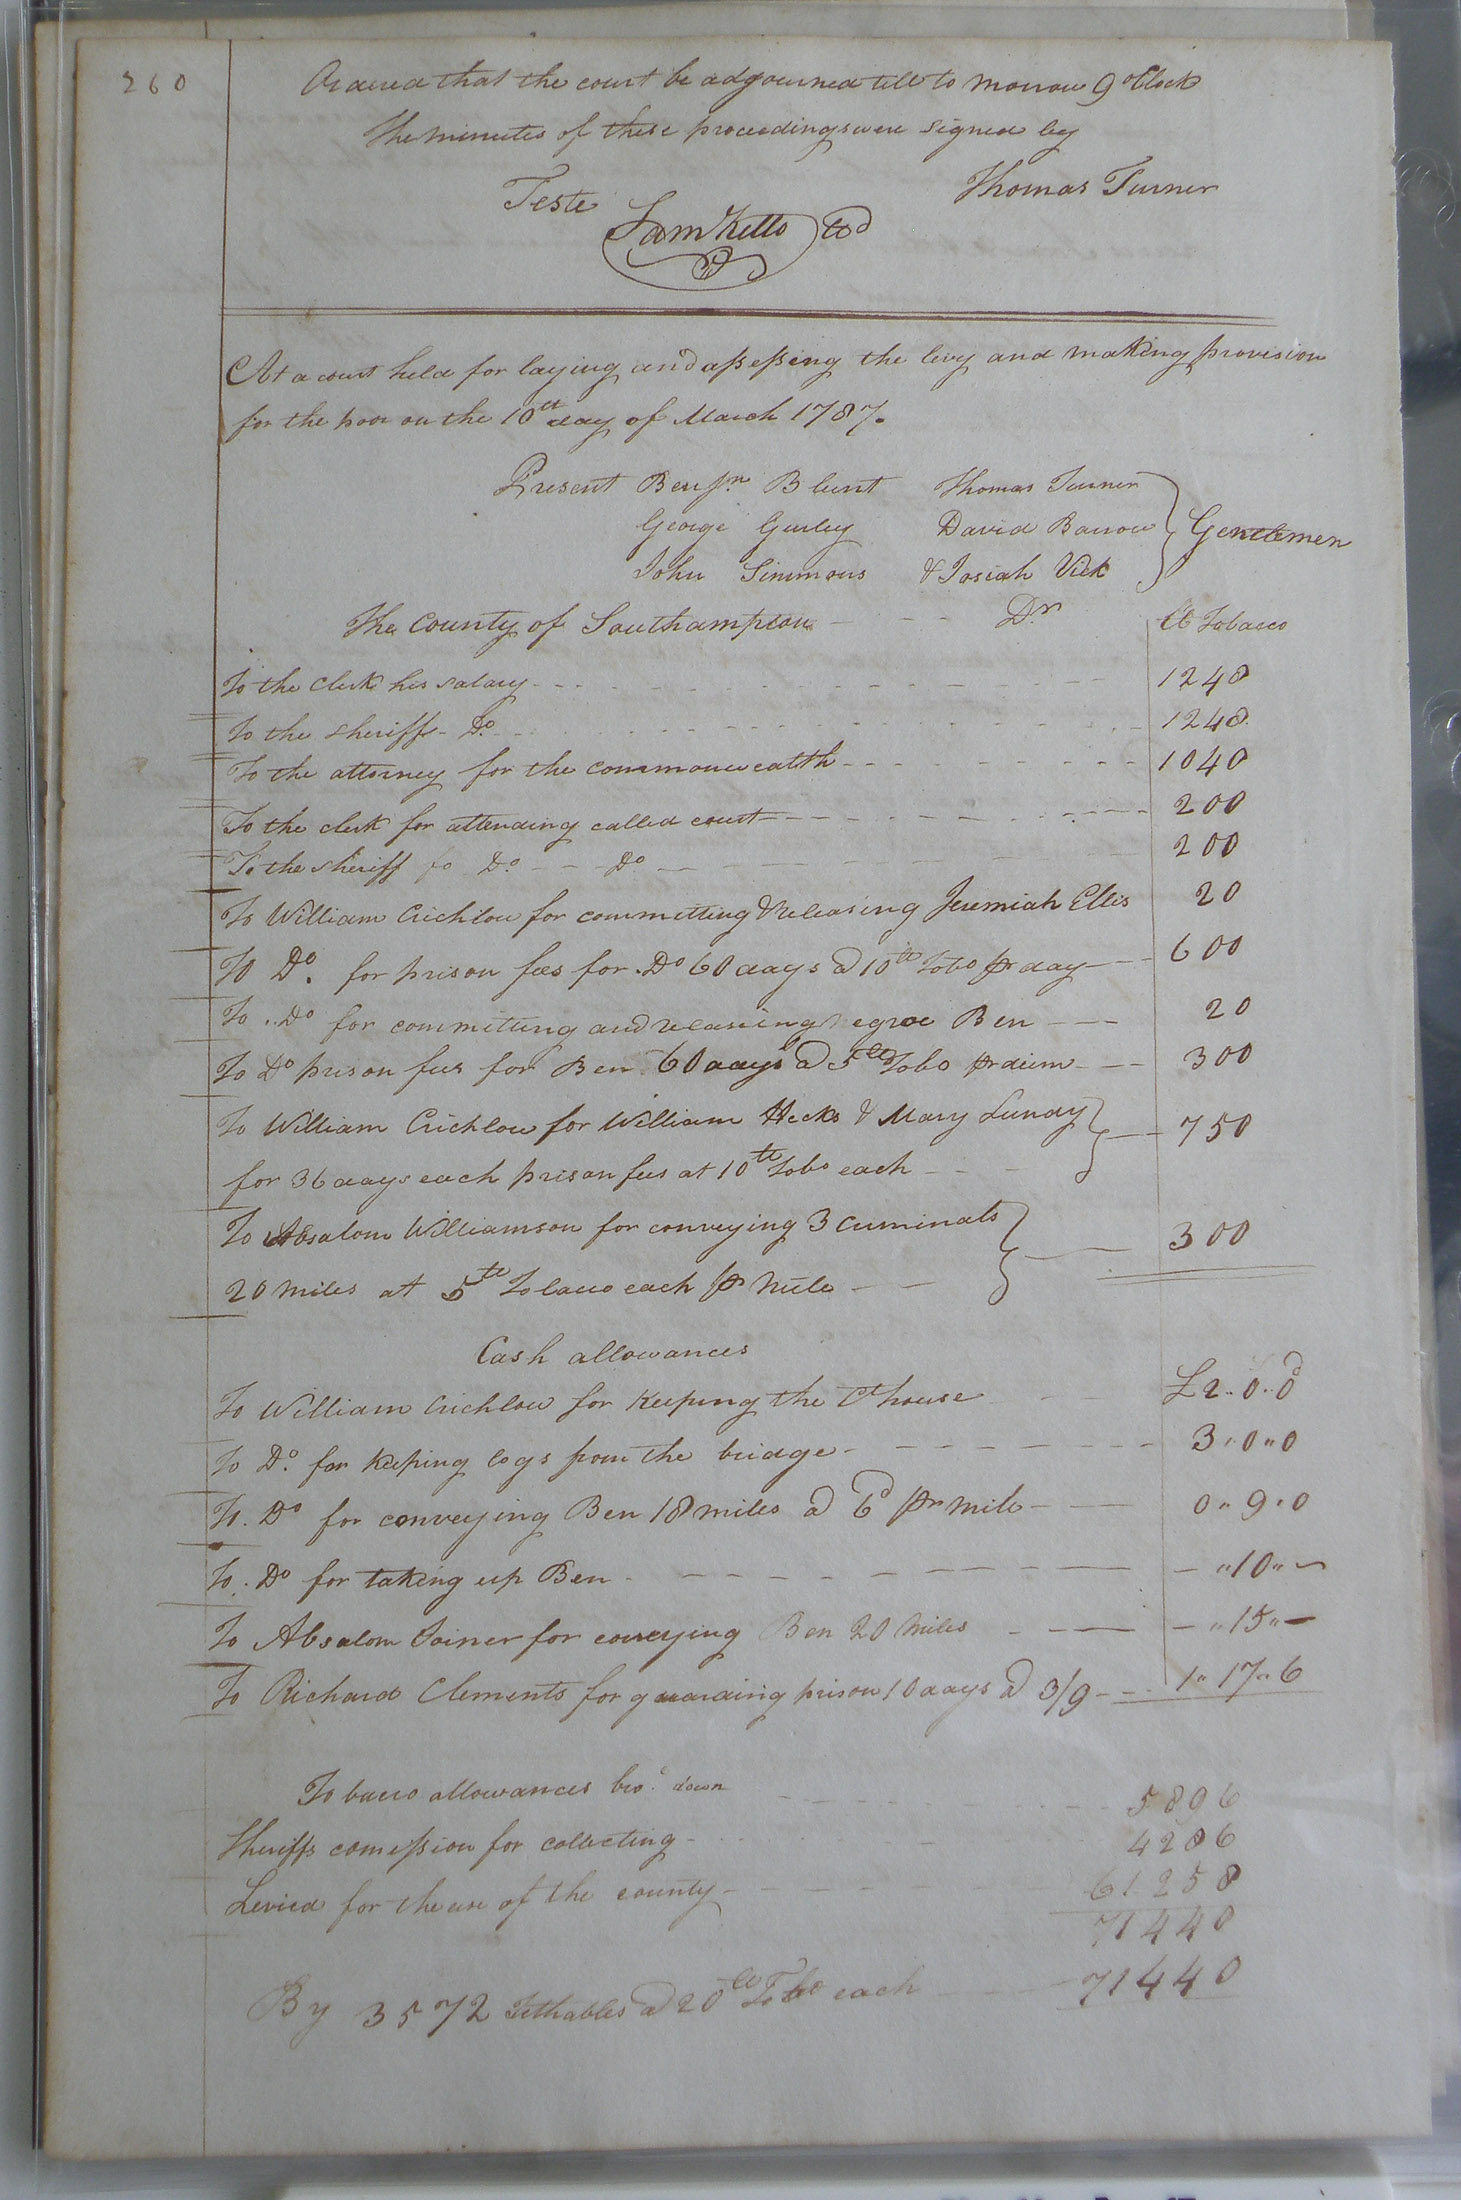 260
Ordered that the court be adjourned till to morrow 9 oClock
The minutes of these proceedings were signed by
Teste
Thomas Turner
Sam Kello
At a court held for laying and assessing the levy and making provision
for the poor on the 10th day of March 1787.
Present Benjn Blunt Thomas Turner
George Gurley David Barrow } Gentlemen
John Simmons & Josiah Vick
The County of Southampton - - - Dr lb Tobacco
To the clerk his salary - - - 1248
To the sheriff - Do - - - 1248
To the attorney for the commonwealth - - - 1040
To the clerk for attending called court - - - 200
To the sheriff fo Do - - Do - - - 200
To William Crichlow for committing & releasing Jeremiah Ellis 20
To Do. for prison fees for Do 60 days @ 10lb Tobo pr day - - 600
To Do for committing and releasing negroe Ben - - 20
To Do prison fees for Ben 60 days @ 5lb Tobo pr diem - - 300
To William Crichlow for William Hicks & Mary Lundy } - 750
for 36 days each prison fees at 10lb Tobo each - -
To Absalom Williamson for conveying 3 criminals } - 300
20 miles at 5lb Tobacco each pr mile - -
Cash allowances
To William Crichlow for keeping the Ct house £2..0..0d
To Do. for keeping logs from the bridge - - - 3..0..0
To. Do for conveying Ben 18 miles @ 6d pr mile - - 0..9..0
To. Do for taking up Ben - - - - ..10.. -
To Absalom Joiner for conveying Ben 20 miles - - - ..15.. -
To Richard Clements for guarding prison 10 days @ 3/9 - - 1..17..6
Tobacco allowances bro.t down - - - 5896
Sheriffs comession for collecting - - - 4286
Levied for the use of the county - - - 61258
71440
By 3572 Tithables @ 20lb Tobo each - - 71440